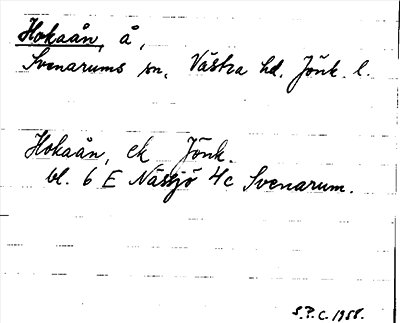 Hokaån, å,
Svenarums sn, Västra hd. Jönk. l.
Hokaån, ek Jönk.
bl. 6 E Nässjö 4c Svenarum.
S.P.C. 1958.